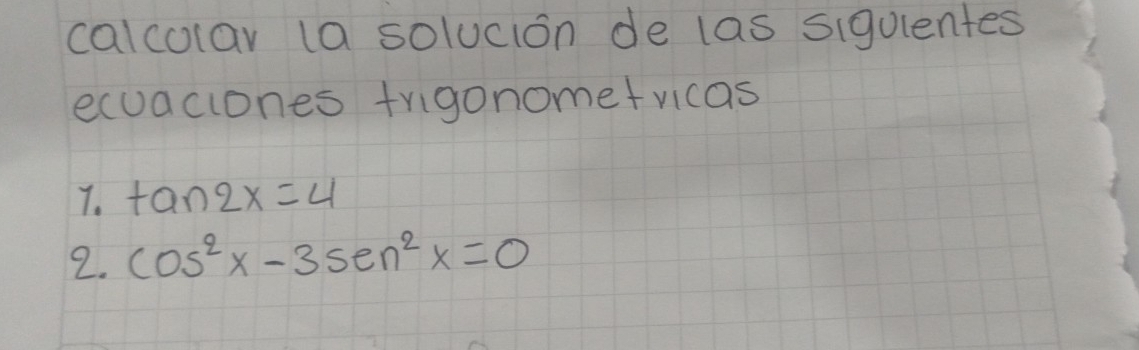 calcular la solución de las siguientes
ecuaciones trigonometricas
1. tan2x=4
2. cos²x-3sen²x=0